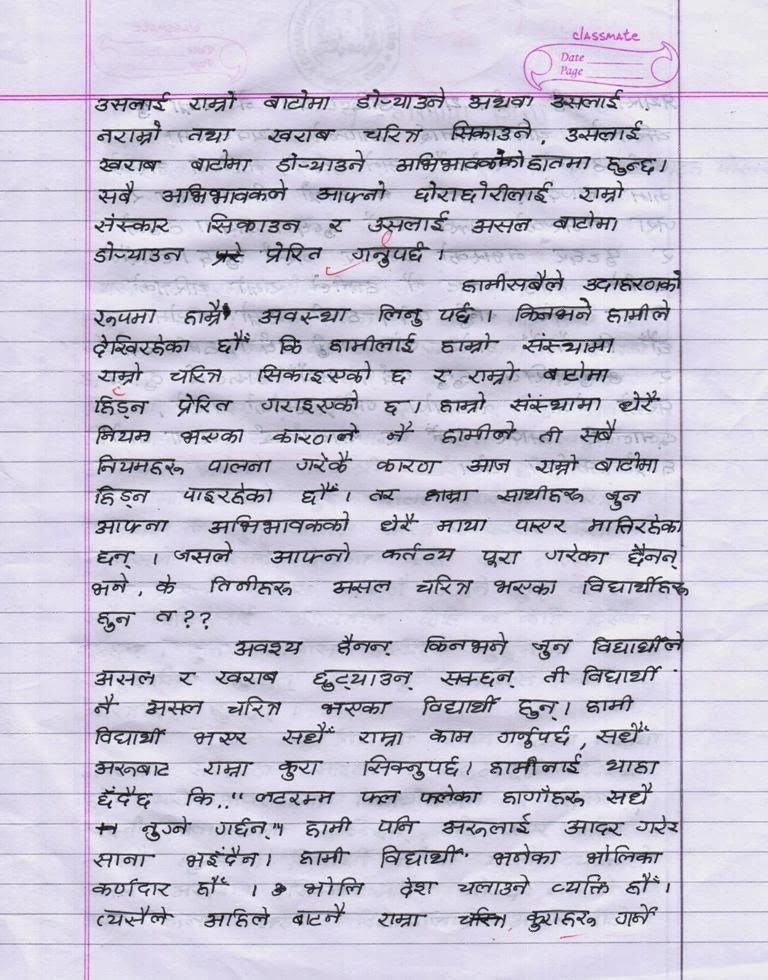 classmate
Date
Page
उसलाई राम्रो बाटोमा डोऱ्याउने अथवा उसलाई
नराम्रो तथा खराब चरित्र सिकाउने, उसलाई
खराब बाटोमा डोऱ्याउने अभिभावकको हातमा हुन्छ।
सबै अभिभावकले आफ्नो छोराछोरीलाई राम्रो
संस्कार सिकाउन र उसलाई असल बाटोमा
डोऱ्याउन प्रेरित गर्नुपर्छ।
हामीसबैले उदाहरणको
रूपमा हाम्रै अवस्था लिनु पर्छ। किनभने हामीले
देखिरहेका छौँ कि हामीलाई हाम्रो संस्थामा
राम्रो चरित्र सिकाइएको छ र राम्रो बाटोमा
हिड्न प्रेरित गराइएको छ। हाम्रो संस्थामा धेरै
नियम भएका कारणले नै हामीले ती सबै
नियमहरू पालना गरेकै कारण आज राम्रो बाटोमा
हिड्न पाइरहेका छौँ। तर हाम्रा साथीहरू जुन
आफ्ना अभिभावकको धेरै माया पाएर मातिरहेका
छन्। जसले आफ्नो कर्तव्य पूरा गरेका छैनन्
भने, के तिनीहरू असल चरित्र भएका विद्यार्थीहरू
हुन त??
अवश्य हैनन् किनभने जुन विद्यार्थीले
असल र खराब छुट्याउन् सक्छन् ती विद्यार्थी
नै असल चरित्र भएका विद्यार्थी हुन्। हामी
विद्यार्थी भएर सधैँ राम्रा काम गर्नुपर्छ, सधैँ
अरूबाट राम्रा कुरा सिक्नुपर्छ। हामीलाई थाहा
छँदैछ कि, "लटरम्म फल फलेका हागाँहरू सधैँ
नुग्ने गर्छन्।" हामी पनि अरूलाई आदर गरेर
साना भइँदैन। हामी विद्यार्थी भनेका भोलिका
कर्णदार हौँ। भोलि देश चलाउने व्यक्ति हौँ।
त्यसैले अहिले बाटनै राम्रा कुराहरू गर्ने